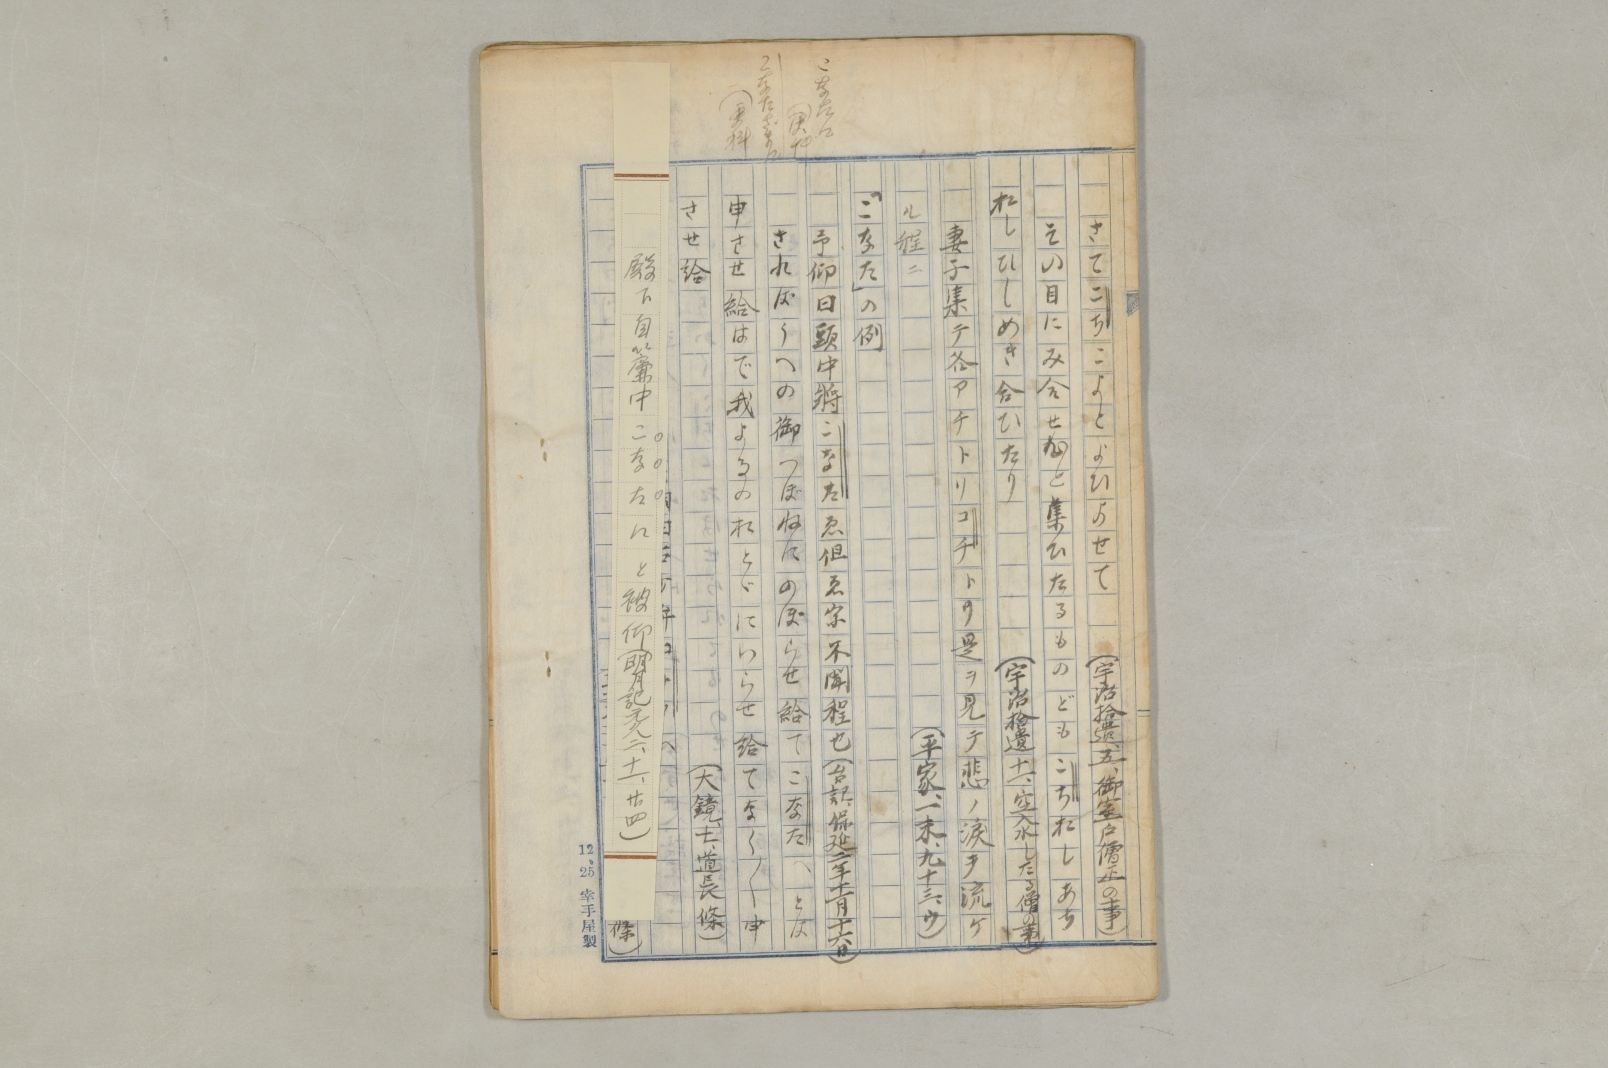 さてこちこよとよひよせて（宇治拾遺、五、御室戸僧正の事）
その目にみ合せねと集ひたるものどもこちおしあち
おしひしめき合ひたり（宇治拾遺十一、空入水したる僧の事）
妻子集テ各アチトリコチトリ是ヲ見テ悲ノ涙ヲ流ケ
ル程ニ（平家、一末、九十三、ウ）
「こなた」の例
予仰曰頭中将こなたゑ但ゑ宗不聞程也（台記、保延二年十一月十六日）
さればうへの御つぼねにのぼらせ給てこなたへとは
申させ給はで我よるのおとゞにいらせ給てなく／＼申
させ給（大鏡、七、道長條）
殿下自簾中こなたにと被仰（明月記元久二、十一、廿四）
條）
こなたに
こなたざまに
（更科
12、25 幸手屋製